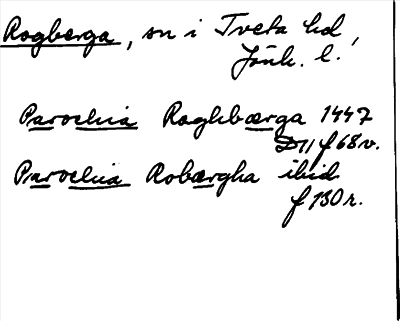 Rogberga, sn i Tveta hd,
Jönk. l.
Parochia Roghbærga 1447
D11 f 68 v.
Parochia Robærgha ibid
f 130 r.